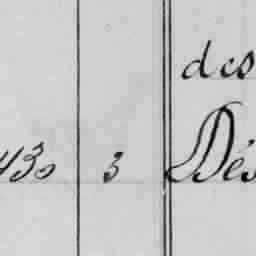 des
430 3 Dés